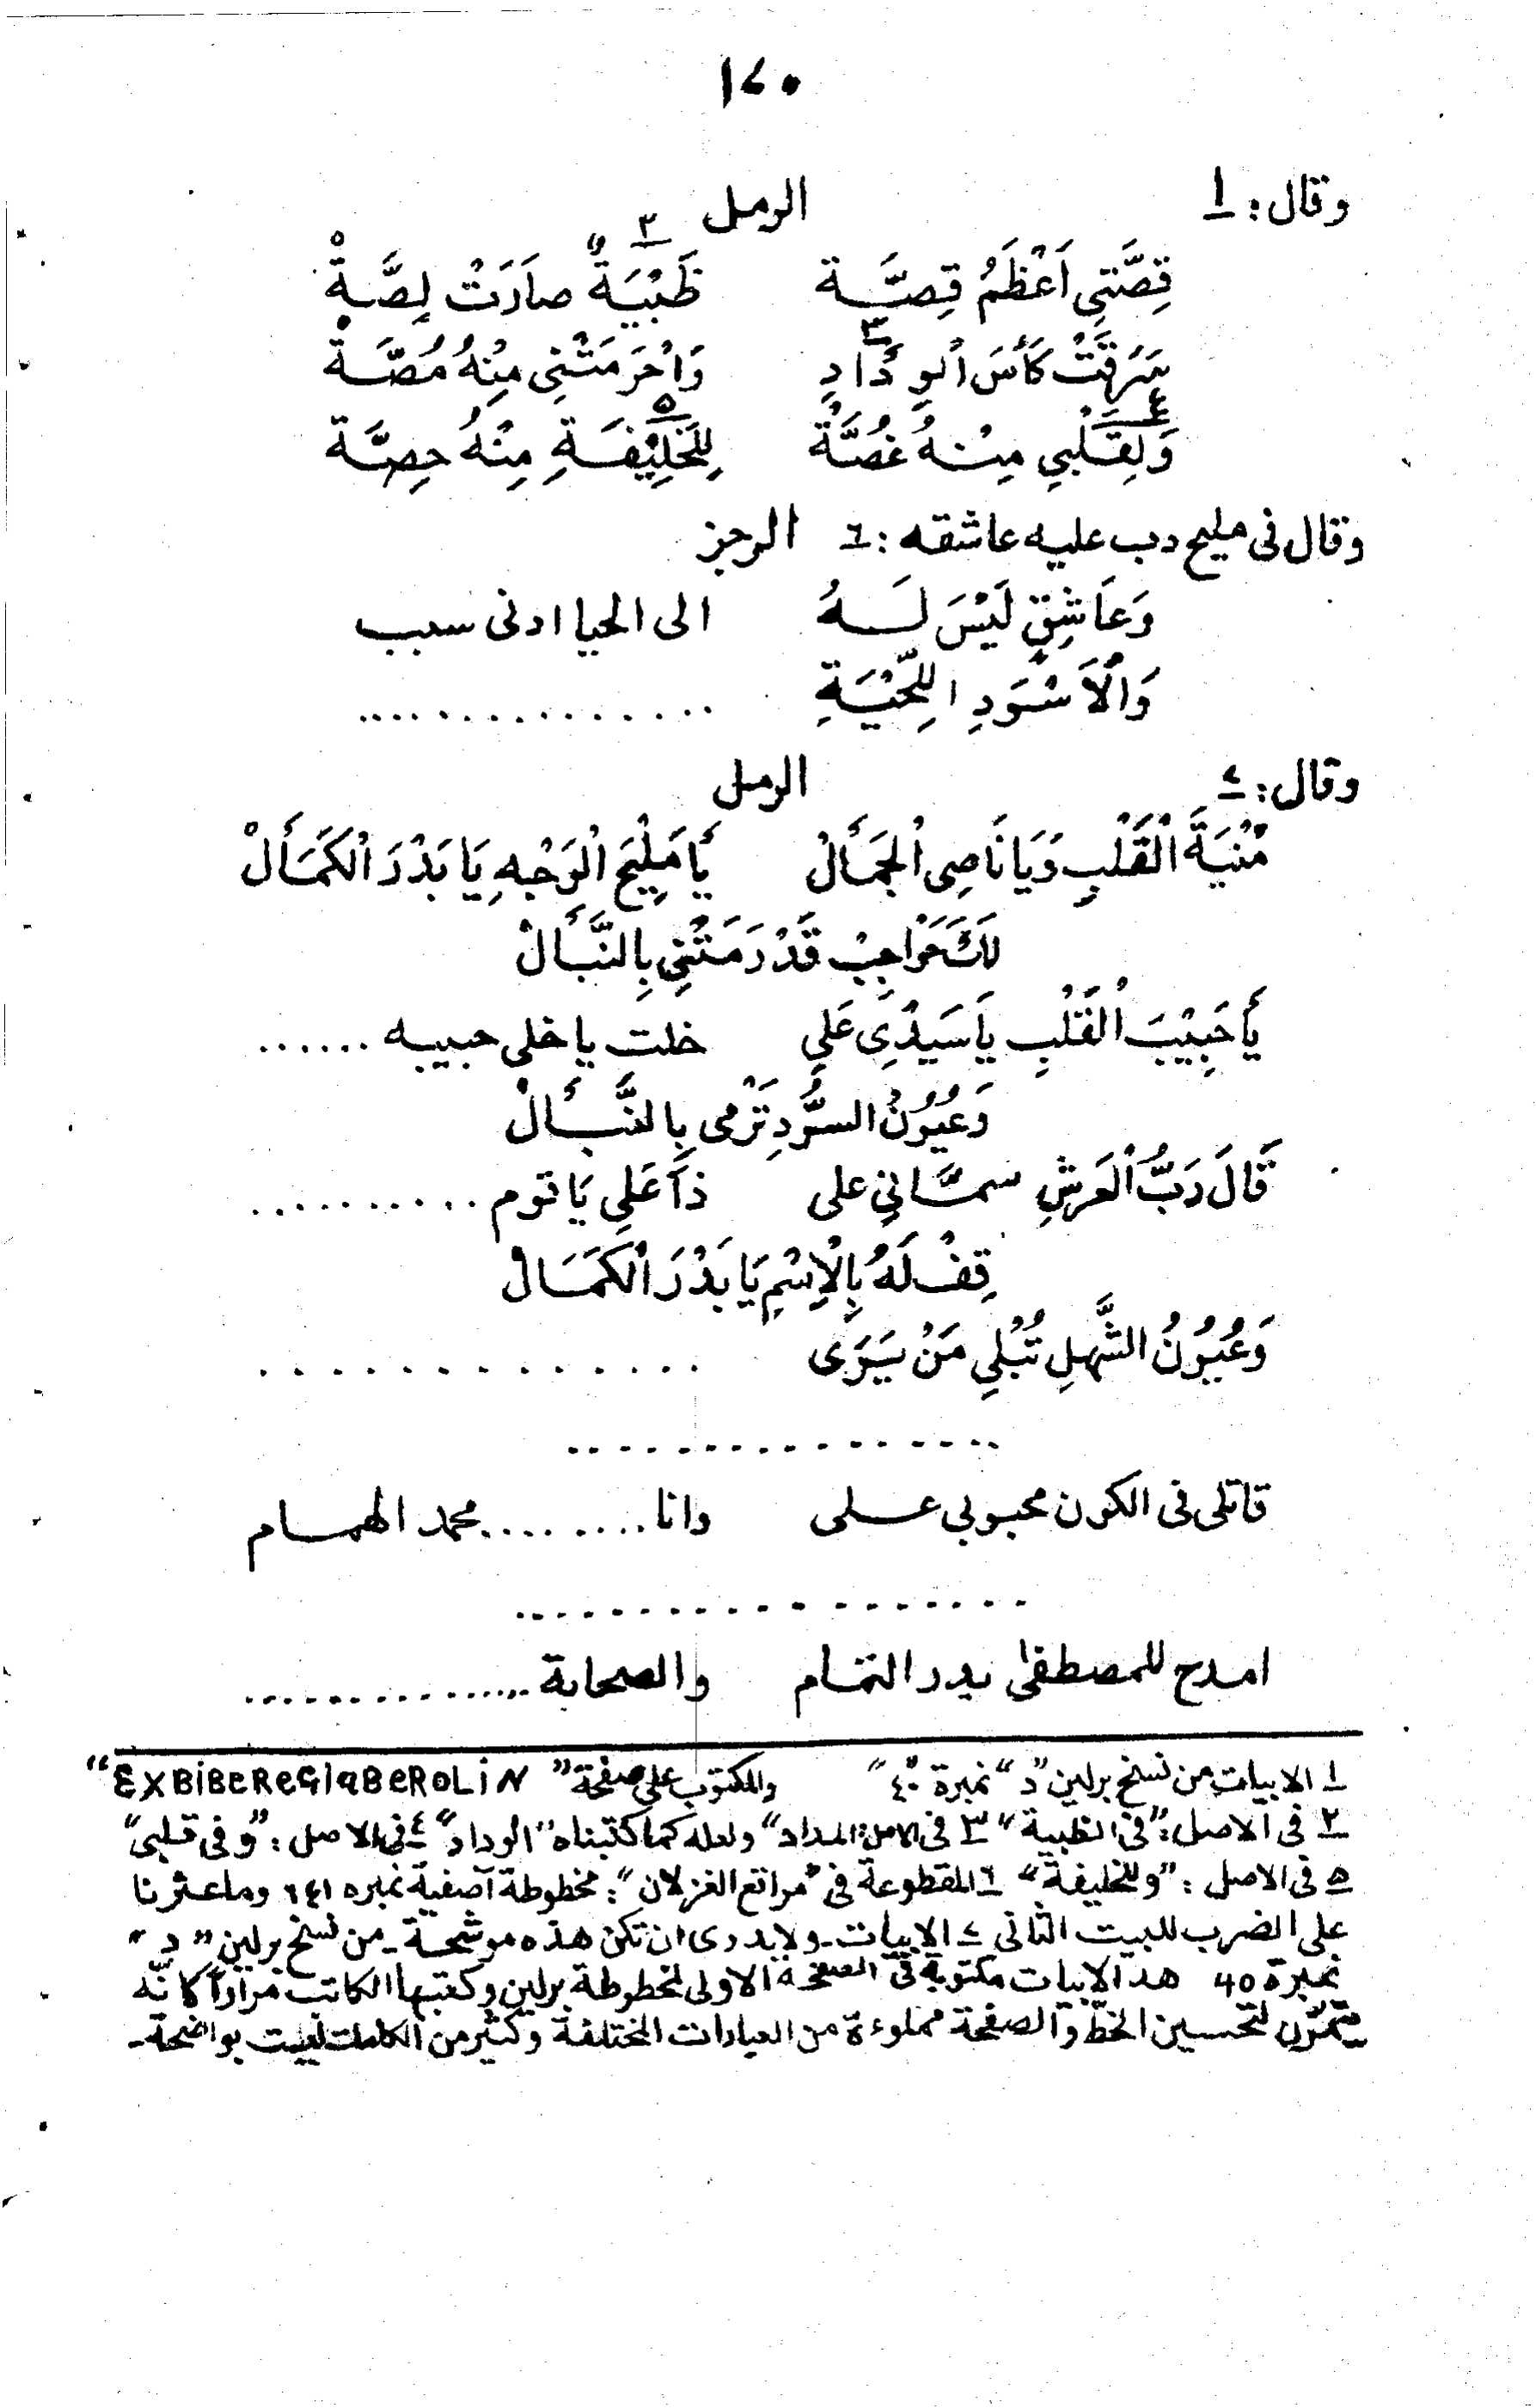 ١٧٠
وقال: ١ الرمل
قِصَّتِي اَعْظَمُ قِصَّة ظَبْيَةٌ ٢ صاَرَتْ لِصَّةْ
سَرَقَتْ كَأسَ الْوِدَادِ ٣ وَاحْرَمَتْنِي مِنْهُ مُصَّةْ
وَلِقَلْبِي ٤ مِنْهُ غُصَّةٌ لِلْخَلِيْفَةِ ٥ مِنْهُ حِصَّة
وقال فى مليح دب عليه عاشقه: ٦ الرجز
وَعَاشِقٍ لَيْسَ لَهُ الى الحيا ادنى سبب
وَالْاَسْوَدِ اللِّحْيَةِ ................
وقال: ٧ الرمل
مُنْيَةَ الْقَلْبِ وَيَا نَاصِى الْجَمَالْ يَا مَلِيْحَ الْوَجْهِ يَا بَدْرَ الْكَمَالْ
لَكَ حَوَاجِبْ قَدْ رَمَتْنِي بِالنَّبَالْ
يَا حَبِيْبَ الْقَلْبِ يَا سَيِّدِى عَلِي خلت يا خلى حبيبه ......
وَعُيُوْنُ السُّودِ تَرْمى بِالنَّبَالْ
قَالَ رَبُّ الْعَرشِ سمَّانِي على ذَا عَلِي يَا قوم ..........
قِفْ لَهُ بِالْاِسْمِ يَا بَدْرَ الْكَمَالْ
وَعُيُوْنُ الشَّهلِ تُبْلِي مَنْ يَرَى ..............
................
قاتلى فى الكون محبوبي على وانا ......... محمد الهمام
..................
امدح للمصطفى بدر التمام والصحابة ..............
١ الابيات من نسخ برلين ”د“ نمبرة ٤٠“ والمكتوب على صفحة ”EXBiBeReGiaBeROLiN“
٢ فى الاصل: ”فى الظبية“ ٣ فى الاصل: المداد“ ولعله كما كتبناه ”الوداد“ ٤ فى الاصل: ”وفى قلبى“
٥ فى الاصل: ”وللخليفة“ ٦ المقطوعة فى ”مراتع الغزلان“: مخطوطة آصفية نمبره ٦٤١ وما عثرنا
على الضرب للبيت الثانى ٧ الابيات۔ ولا يدرى ان تكن هذه موشحة۔ من نسخ برلين ”د“
نمبرة 40 هذ الابيات مكتوبة فى الصفحة الاولى لمخطوطة برلين وكتبها الكاتب مرارًا كانّه
يتمرّن لتحسين الخط والصفحة مملوءة من العبارات المختلفة وكثير من الكلمات ليست بواضحة۔